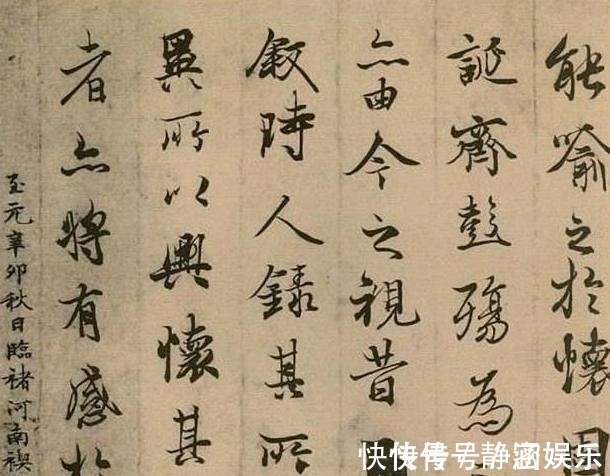 能喻之於懷固
誕齊彭殤為
亦由今之視昔
叙時人錄其所
異所以興懷其
者亦將有感於
至元辛卯秋日臨褚河南禊
快传号/静涵娱乐